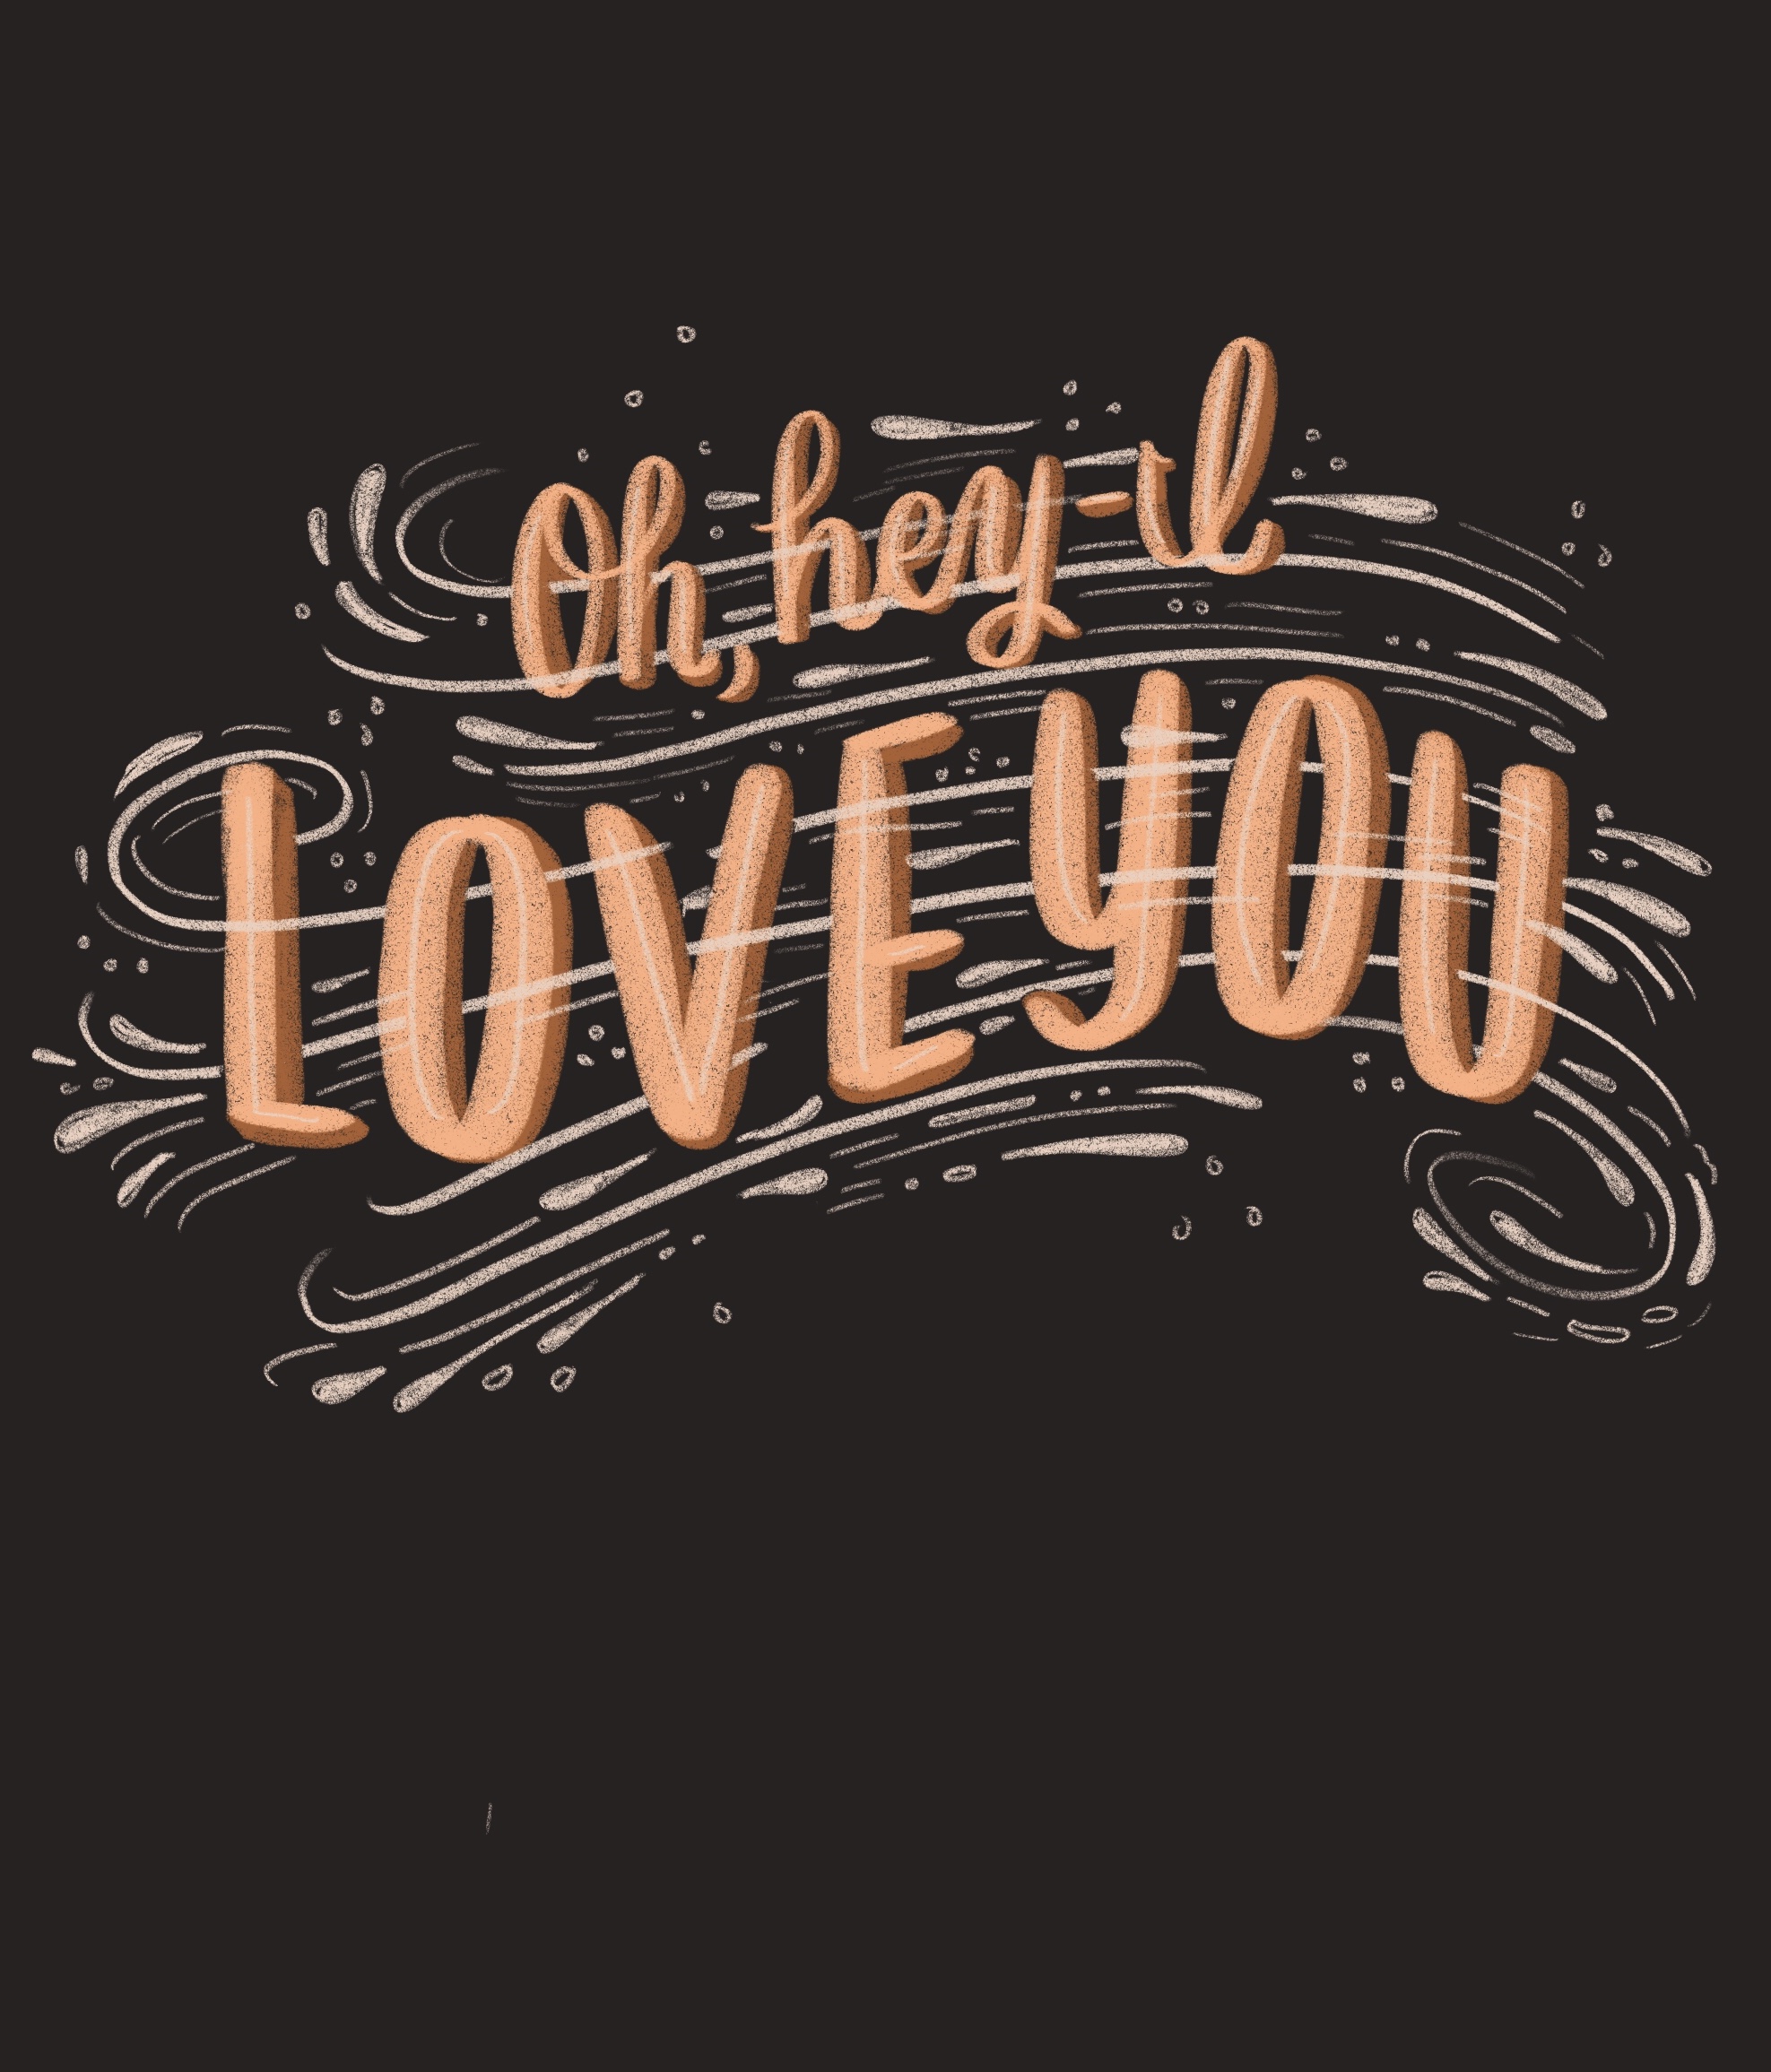 Oh, hey-I
LOVE YOU